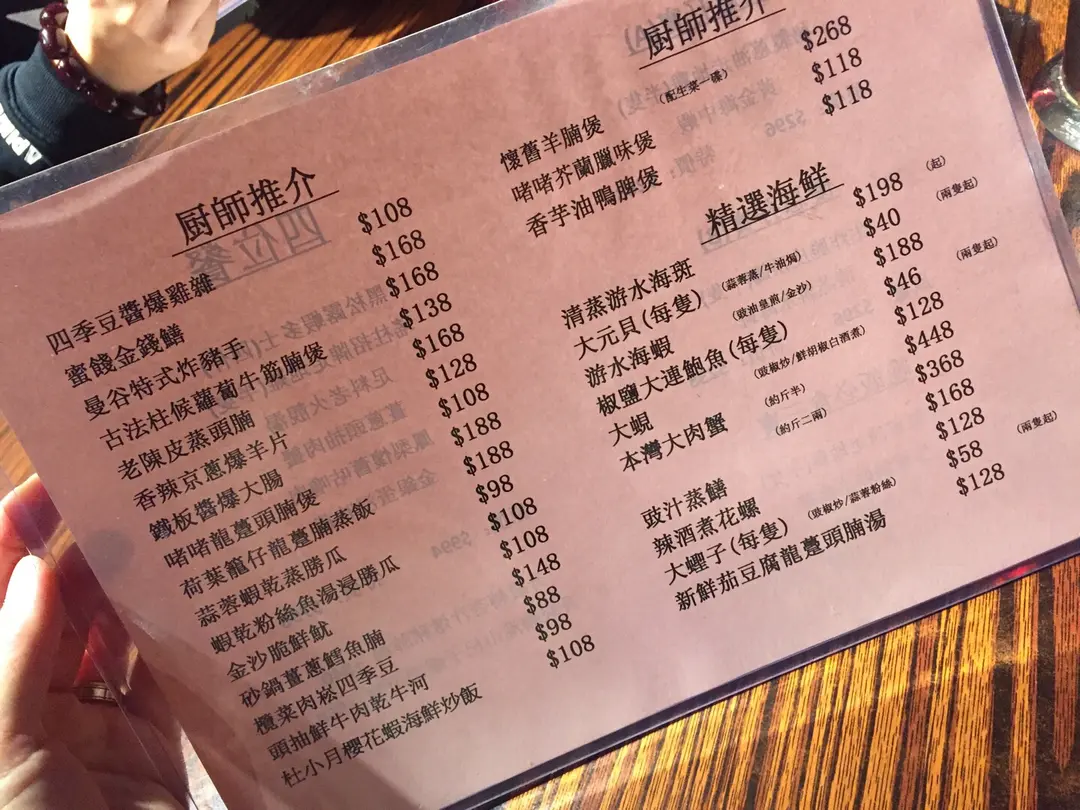 厨師推介
四季豆醬爆雞雜 $108
蜜餞金錢鱔 $168
曼谷特式炸豬手 $168
古法柱候蘿蔔牛筋腩煲 $138
老陳皮蒸頭腩 $168
香辣京蔥爆羊片 $128
鐵板醬爆大腸 $108
啫啫龍躉頭腩煲 $188
荷葉籠仔龍躉腩蒸飯 $188
蒜蓉蝦乾蒸勝瓜 $98
蝦乾粉絲魚湯浸勝瓜 $108
金沙脆鮮魷 $108
砂鍋薑蔥鱈魚腩 $148
欖菜肉崧四季豆 $88
頭抽鮮牛肉乾牛河 $98
杜小月櫻花蝦海鮮炒飯 $108
厨師推介
懷舊羊腩煲 (配生菜一碟) $268
啫啫芥蘭臘味煲 $118
香芋油鴨脾煲 $118
精選海鮮
清蒸游水海斑 $198 (起)
大元貝(每隻) (蒜蓉蒸/牛油焗) $40 (兩隻起)
游水海蝦 (豉油皇煎/金沙) $188
椒鹽大連鮑魚(每隻) $46 (兩隻起)
大蜆 (豉椒炒/鮮胡椒白酒煮) $128
本灣大肉蟹 (約斤半) $448
(約斤二兩) $368
豉汁蒸鱔 $168
辣酒煮花螺 $128
大蟶子(每隻) (豉椒炒/蒜蓉粉絲) $58 (兩隻起)
新鮮茄豆腐龍躉頭腩湯 $128